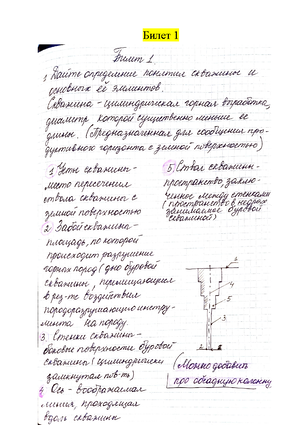 Билет 1
Билет 1.
1. Дайте определение понятия скважины и
основных её элементов.
Скважина - цилиндрическая горная выработка,
диаметр которой существенно меньше её
длины. (Предназначенная для сообщения про-
дуктивного горизонта с земной поверхностью)
1. Устье скважины -
место пересечения
ствола скважины с
земной поверхностью
2. Забой скважины -
площадь, по которой
происходит разрушение
горных пород (дно буровой
скважины, перемещающееся
в рез-те воздействия
породоразрушающего инстру-
мента на породу.
3. Стенки скважины -
боковые поверхности буровой
скважины (цилиндрически
замкнутая пов-ть)
4. Ось - воображаемая
линия, проходящая
вдоль скважины
5. Ствол скважины -
пространство, заклю-
ченное между стенками
(пространство в недрах
занимаемое буровой
скважиной)
1
3
4
5
2
(Можно добавить
про обсадную колонну